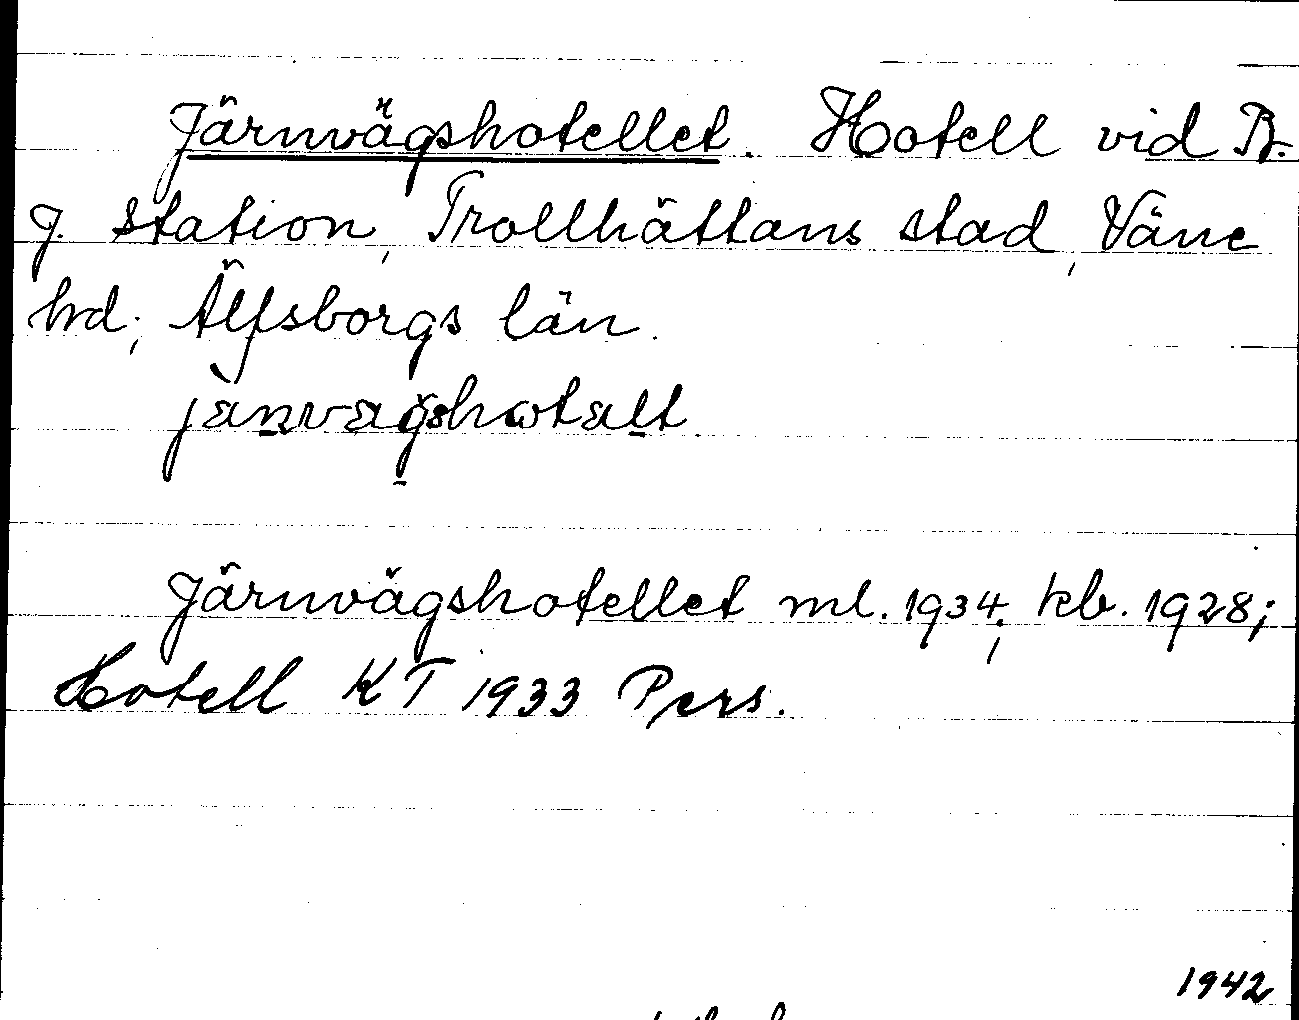 Järnvägshotellet. Hotell vid B.
J. station, Trollhättans stad, Väne
hd; Älfsborgs län.
Järnvägshotellet ml. 1934; kb. 1928;
Hotell KT 1933 Pers.
1942